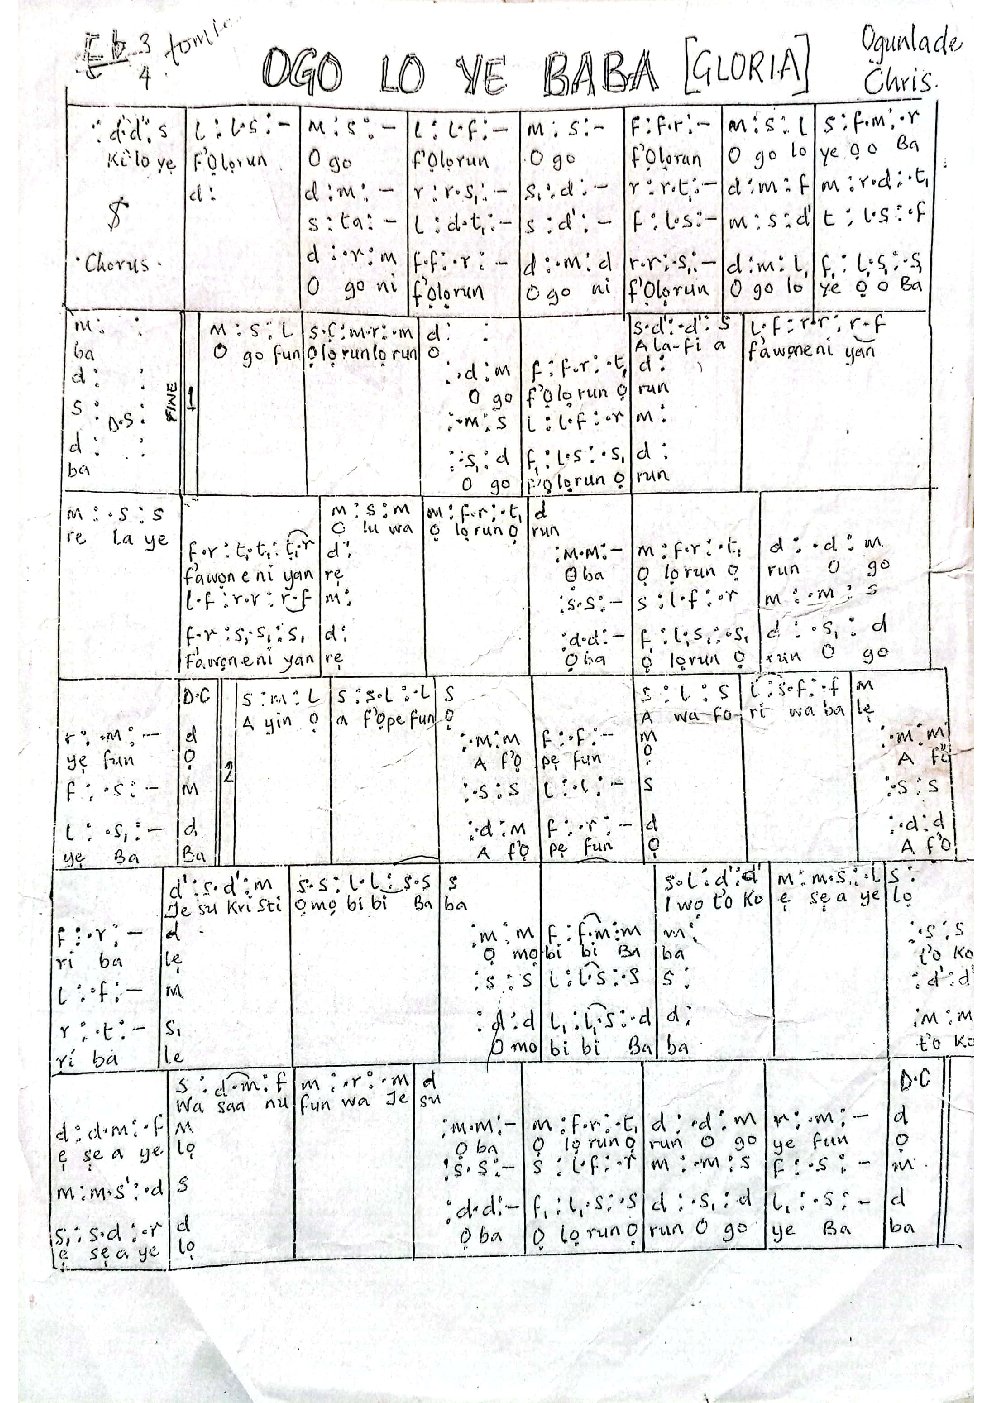 Eb 3/4
OGO LO YE BABA [GLORIA]
Ogunlade
Chris.
: d'.d' : s | l : l.s : – | m : s : – | l : l.f : – | m : s : – | f : f.r : – | m : s : l | s : f.m : .r
Ki lo ye | f'Ọlọrun | O go | f'Ọlọrun | O go | f'Ọlọrun | O go lo | ye ọ o Ba
d : | d : m : – | r : r.s, : – | s, : d : – | r : r.t, : – | d : m : f | m : r.d : .t,
s : ta : – | l : d.t, : – | s : d' : – | f : l.s : – | m : s : d' | t : l.s : .f
Chorus. | d : .r : m | f.f : .r : – | d : .m : d | r.r : .s, : – | d : m : l, | f, : l,.s, : .s,
O go ni | f'Ọlọrun | O go ni | f'Ọlọrun | O go lo | ye ọ o Ba
m : : | m : s : l | s.f : m.r : .m | d : : | s.d' : .d' : s | l.f : r.r : r.f
ba | O go fun | Ọlọrunlọrun | O | A la-fi a | fawọneni yan
d : : | : .d : m | f : f.r : .t, | d :
O go | f'Ọlọrun Ọ | run
s : : D.S. FINE 1 | : .m : s | l : l.f : .r | m :
d : : | : .s, : d | f, : l,.s, : .s, | d :
ba | O go | f'Ọlọrun Ọ | run
m : .s : s | m : s : m | m : f.r : .t, | d
re la ye | O lu wa | Ọ lọrun Ọ | run
f.r : t,.t, : t,.r | d : | : m.m : – | m : f.r : .t, | d : .d : m
fawọneni yan | rẹ | Ọba | Ọ lọrun Ọ | run O go
l.f : r.r : r.f | m : | : s.s : – | s : l.f : .r | m : .m : s
f.r : s,.s, : s, | d : | : d.d : – | f, : l,.s, : .s, | d : .s, : d
fawọneni yan | rẹ | Ọba | Ọ lọrun Ọ | run O go
D.C | s : m : l | s : s.l : .l | s | s : l : s | l : s.f : .f | m
A yin Ọ | a f'ọpe fun | Ọ | A wa fo- | ri wa ba | lẹ
r : .m : – | d | : .m : m | f : .f : – | m | : .m : m
ye fun | Ọ | A f'ọ | pẹ fun | Ọ | A fi
f : .s : – | m | 2 | : .s : s | l : .l : – | s | : .s : s
l : .s, : – | d | : .d : m | f : .r : – | d | : .d : d
yẹ Ba | Ba | A f'ọ | pẹ fun | Ọ | A f'o
d' : s.d' : m | s.s : l.l : s.s | s | s.l : d'.d' | m : m.s : .l | s :
Je su Kristi | Ọmọ bi bi Ba | ba | I wọ to Ko | ẹ sẹ a ye | lọ
f : .r : – | d | : .m : m | f : f.m : m | m : | : .s : s
ri ba | lẹ | Ọ mọ | bi bi Ba | ba | t'o Ko
l : .f : – | m | : .s : s | l : l.s : .s | s : | : d' : d'
r : .t : – | s, | : .d : d | l, : l,.s : .d | d : | : m : m
ri ba | le | Omo | bi bi Ba | ba | t'o Ko
s : d.m : f | m : .r : .m | d | D.C
Wa saa nu | fun wa Je | su
d : d.m : .f | m | : m.m : – | m : f.r : .t, | d : .d : m | r : .m : – | d
ẹ sẹ a yẹ | lọ | Ọba | Ọ lọrun Ọ | run O go | ye fun | Ọ
m : m.s : .d | s | : s.s : – | s : l.f : .r | m : .m : s | f : .s : – | m
s, : s.d : .r | d | : d.d : – | f, : l,.s : .s | d : .s, : d | l, : .s : – | d
ẹ sẹ a ye | lọ | Ọba | Ọ lọrun Ọ | run O go | ye Ba | ba